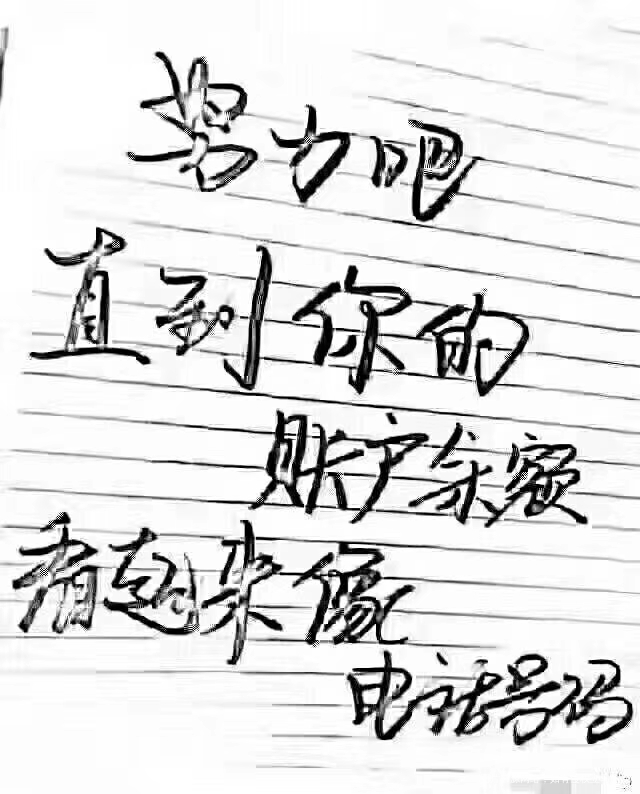 努力吧
直到你的
账户余额
看起来像
电话号码